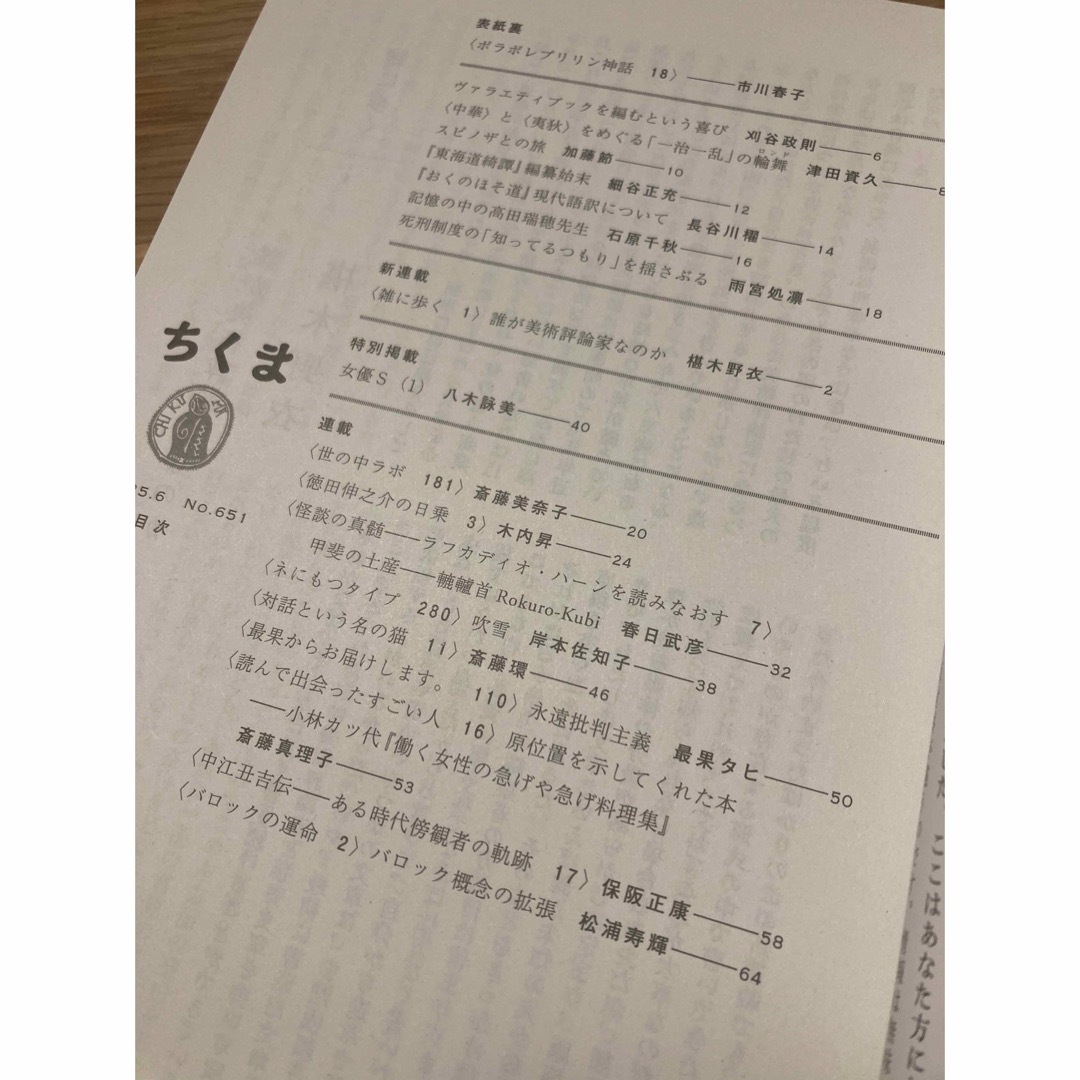 表紙裏
〈ボラボレプリリン神話 18〉——市川春子
ヴァラエティブックを編むという喜び 刈谷政則——6
〈中華〉と〈夷狄〉をめぐる「一治一乱」の輪舞 津田資久——8
ロンド
スピノザとの旅 加藤節——10
『東海道綺譚』編纂始末 細谷正充——12
『おくのほそ道』現代語訳について 長谷川櫂——14
記憶の中の高田瑞穂先生 石原千秋——16
死刑制度の「知ってるつもり」を揺さぶる 雨宮処凛——18
新連載
〈雑に歩く 1〉誰が美術評論家なのか 椹木野衣——2
特別掲載
女優S(1) 八木詠美——40
連載
〈世の中ラボ 181〉斎藤美奈子——20
〈徳田伸之介の日乗 3〉木内昇——24
〈怪談の真髄——ラフカディオ・ハーンを読みなおす 7〉
甲斐の土産——轆轤首 Rokuro-Kubi 春日武彦——32
〈ネにもつタイプ 280〉吹雪 岸本佐知子——38
〈対話という名の猫 11〉斎藤環——46
〈最果からお届けします。 110〉永遠批判主義 最果タヒ——50
〈読んで出会ったすごい人 16〉原位置を示してくれた本
——小林カツ代『働く女性の急げや急げ料理集』
斎藤真理子——53
〈中江丑吉伝——ある時代傍観者の軌跡 17〉保阪正康——58
〈バロックの運命 2〉バロック概念の拡張 松浦寿輝——64
ちくま
CHIKUMA
25.6 No.651
目次
ここはあなた方に